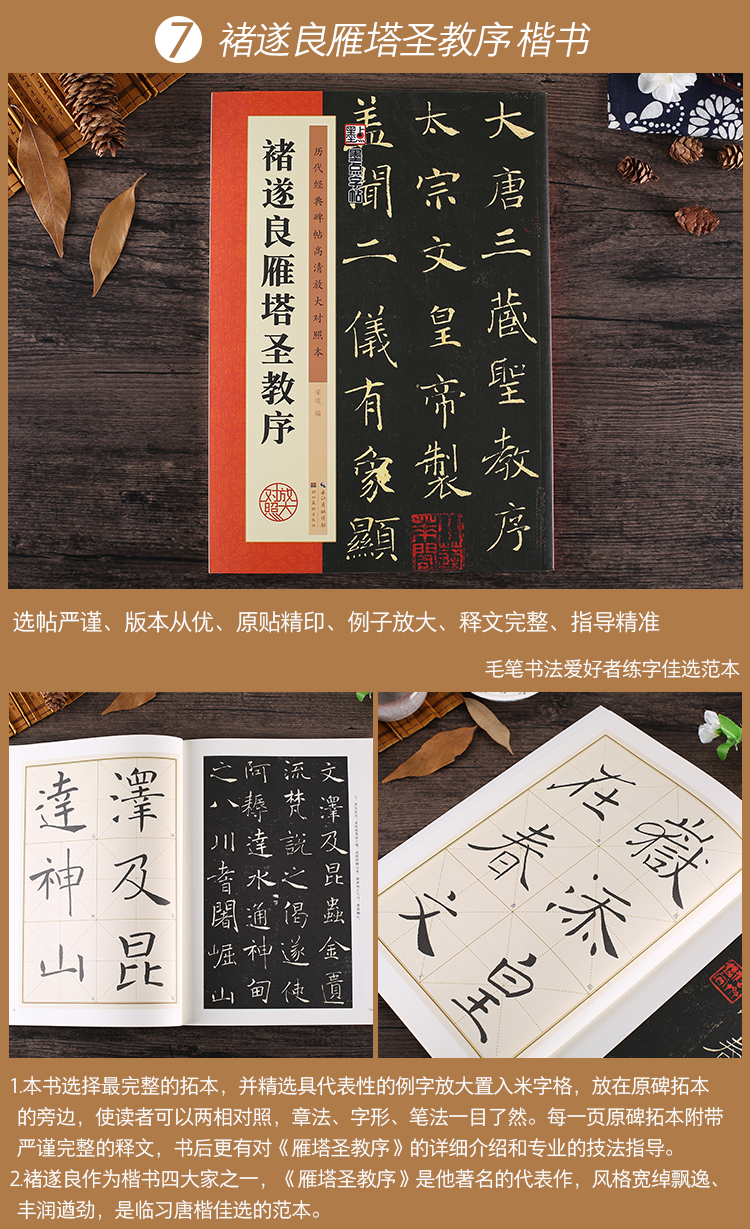 7 褚遂良雁塔圣教序 楷书
褚遂良雁塔圣教序
历代经典碑帖高清放大对照本
放大对照
墨点字帖
大唐三藏聖教序
太宗文皇帝製
盖聞二儀有象顯
选帖严谨、版本从优、原贴精印、例子放大、释文完整、指导精准
毛笔书法爱好者练字佳选范本
澤及昆
達神山
文澤及昆蟲金匱
流梵說之偈遂使
阿耨達水通神甸
之八川耆闍崛山
嶽添皇
在春文
1.本书选择最完整的拓本，并精选具代表性的例字放大置入米字格，放在原碑拓本
的旁边，使读者可以两相对照，章法、字形、笔法一目了然。每一页原碑拓本附带
严谨完整的释文，书后更有对《雁塔圣教序》的详细介绍和专业的技法指导。
2.褚遂良作为楷书四大家之一，《雁塔圣教序》是他著名的代表作，风格宽绰飘逸、
丰润遒劲，是临习唐楷佳选的范本。